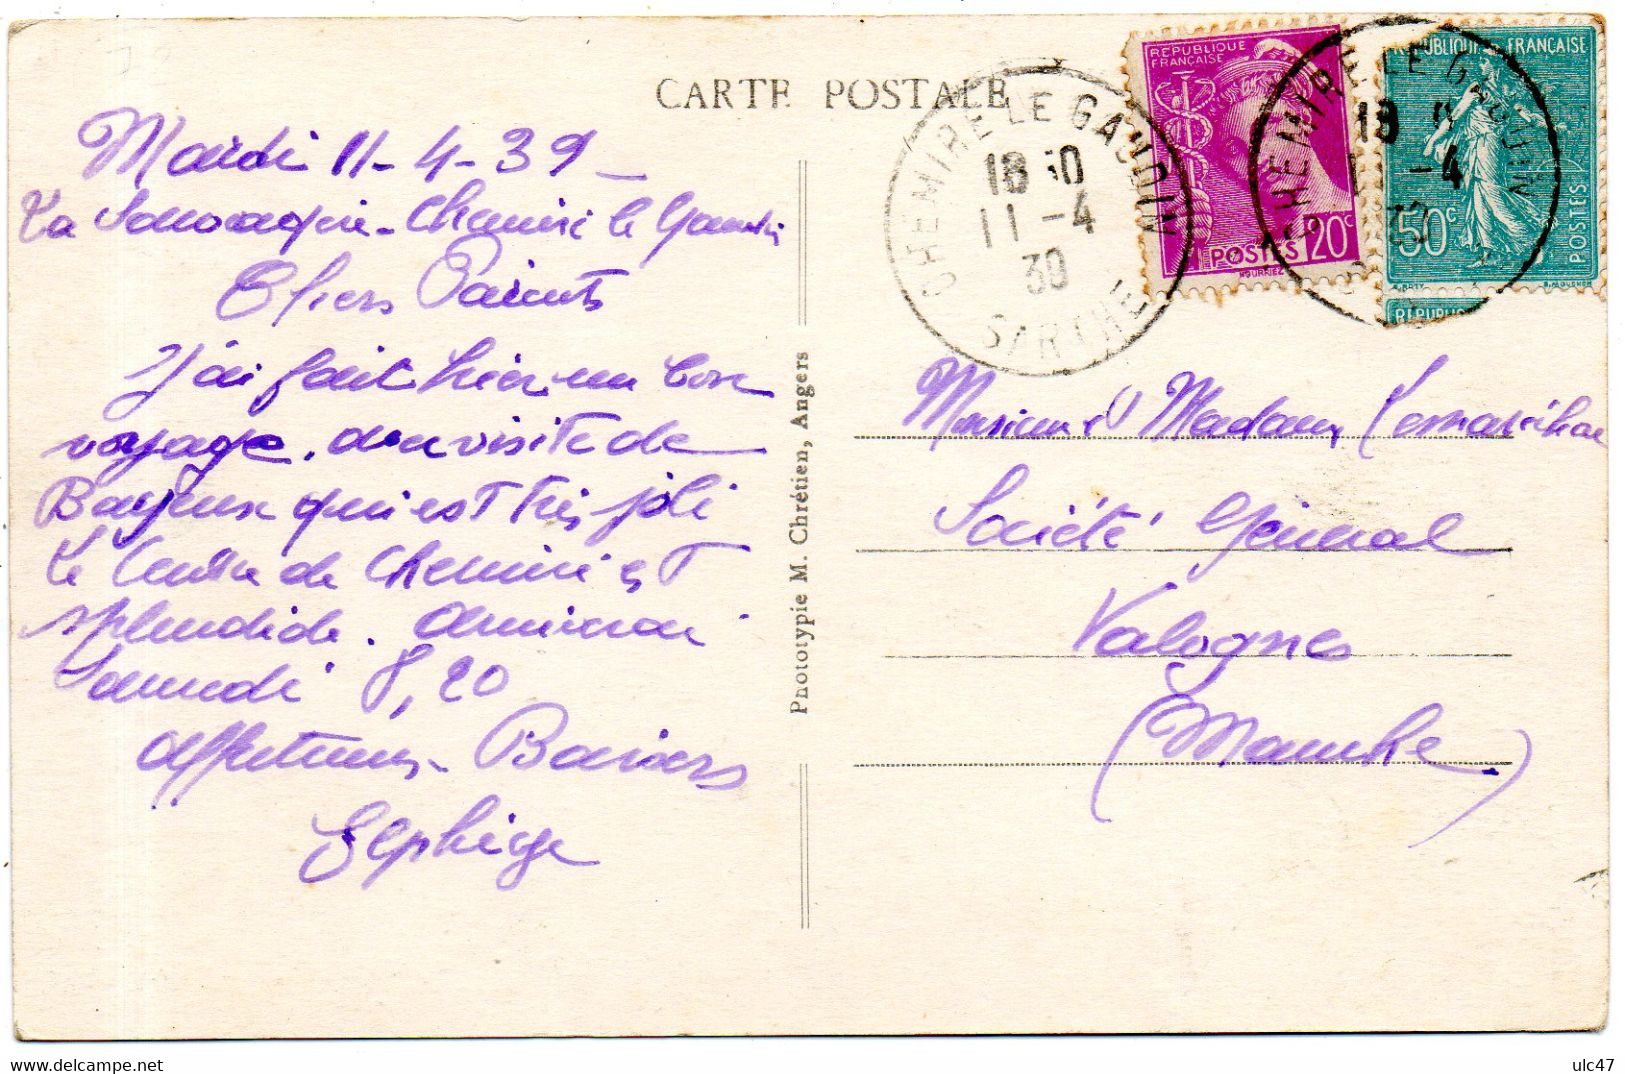 CARTE POSTALE
Mardi 11-4-39
La - Chemiré le Gaudin
Chers Parents
J'ai fait hier un bon
voyage. visite de
Bayeux qui est très joli
Le Centre de Chemiré est
splendide. arriverai
Samedi 8,20
affectueux Baisers
Phototypie M. Chrétien, Angers
CHEMIRE LE GAUDIN
18 30
11 -4
39
SARTHE
REPUBLIQUE
FRANÇAISE
POSTES 20c
CHEMIRE LE GAUDIN
18
-4
39
REPUBLIQUE FRANÇAISE
50c
POSTES
REPUBLIQ
Monsieur et Madame
Société Général
Valognes
(Manche)
delcampe.net
ulc47